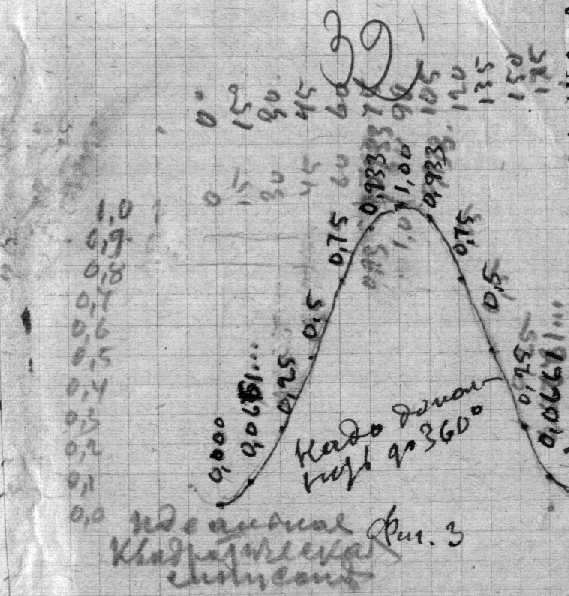 39
0 15 30 45 60 75 90 105 120 135 150
0 15 30 45 60
1,0
0,9
0,8
0,7
0,6
0,5
0,4
0,3
0,2
0,1
0,0
0,000
0,0669...
0,25
0,5
0,75
0,933
1,00
0,933
0,75
0,5
0,25
Надо допол-
до 360°
Фиг. 3
Идеальная
Квадратическая
синусоида